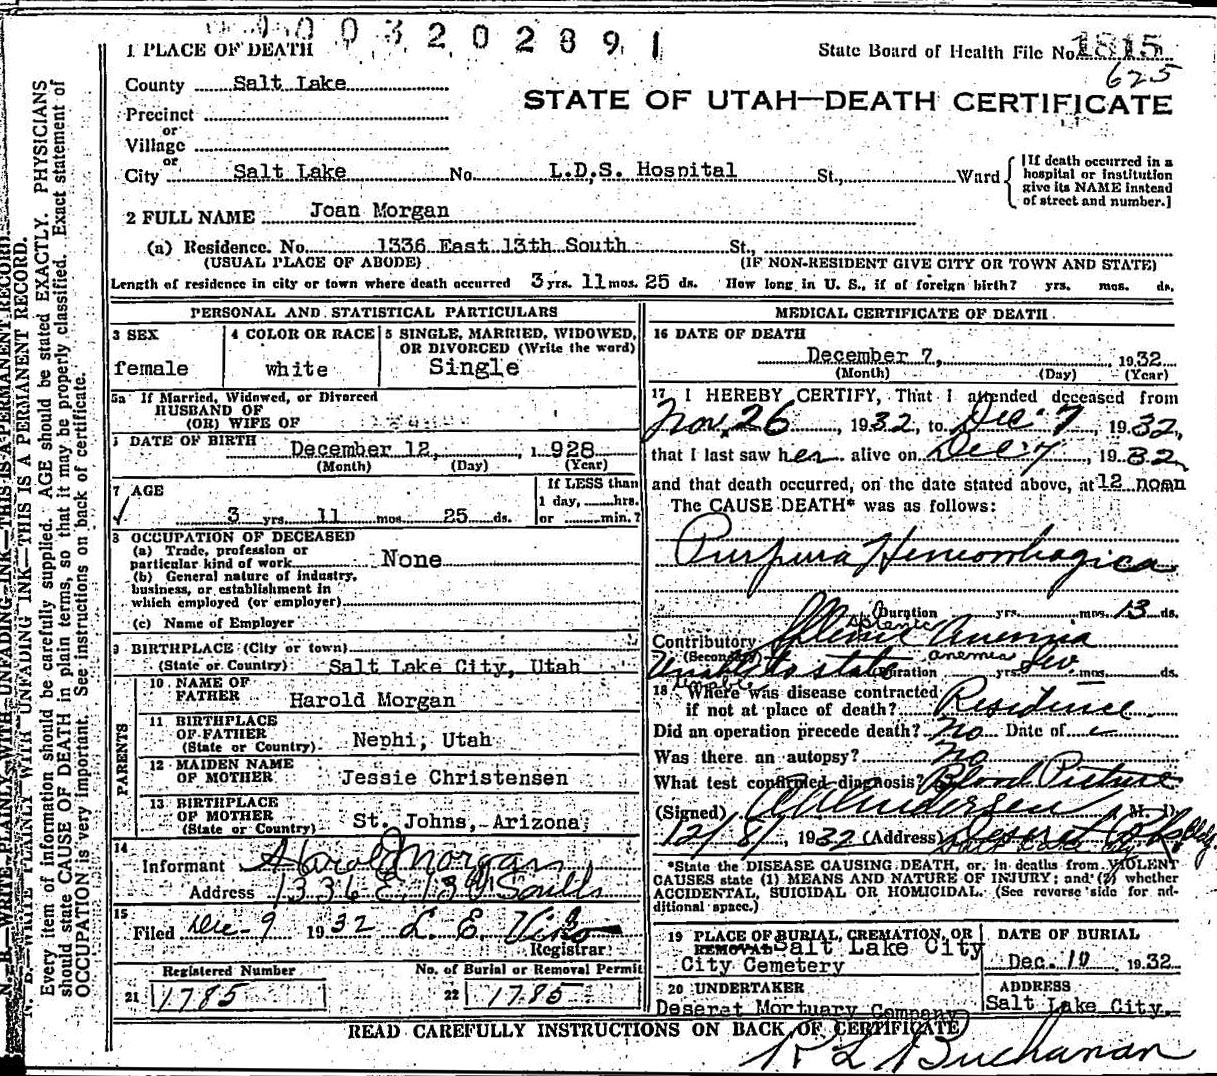 003202891
1 PLACE OF DEATH
State Board of Health File No. 1815
625
County Salt Lake
STATE OF UTAH—DEATH CERTIFICATE
Precinct
or
Village
or
City Salt Lake No. L.D.S. Hospital St., Ward
[If death occurred in a
hospital or institution
give its NAME instead
of street and number.]
2 FULL NAME Joan Morgan
(a) Residence. No. 1336 East 13th South St.,
(USUAL PLACE OF ABODE) (IF NON-RESIDENT GIVE CITY OR TOWN AND STATE)
Length of residence in city or town where death occurred 3 yrs. 11 mos. 25 ds. How long in U. S., if of foreign birth? yrs. mos. ds.
PERSONAL AND STATISTICAL PARTICULARS
3 SEX
female
4 COLOR OR RACE
white
5 SINGLE, MARRIED, WIDOWED,
OR DIVORCED (Write the word)
Single
5a If Married, Widowed, or Divorced
HUSBAND OF
(OR) WIFE OF
DATE OF BIRTH December 12, 1928
(Month) (Day) (Year)
7 AGE
3 yrs. 11 mos. 25 ds.
If LESS than
1 day, hrs.
or min.?
8 OCCUPATION OF DECEASED
(a) Trade, profession or
particular kind of work None
(b) General nature of industry,
business, or establishment in
which employed (or employer)
(c) Name of Employer
9 BIRTHPLACE (City or town)
(State or Country) Salt Lake City, Utah
PARENTS
10 NAME OF
FATHER Harold Morgan
11 BIRTHPLACE
OF FATHER
(State or Country) Nephi, Utah
12 MAIDEN NAME
OF MOTHER Jessie Christensen
13 BIRTHPLACE
OF MOTHER
(State or Country) St. Johns, Arizona
14
Informant Harold Morgan
Address 1336 E. 13th South
15
Filed Dec-9 1932 L. E. Viko
Registrar
Registered Number
21 1785
No. of Burial or Removal Permit
22 1785
MEDICAL CERTIFICATE OF DEATH
16 DATE OF DEATH
December 7, 1932
(Month) (Day) (Year)
17 I HEREBY CERTIFY, That I attended deceased from
Nov. 26, 1932, to Dec 7, 1932,
that I last saw her alive on Dec 7, 1932
and that death occurred, on the date stated above, at 12 noon
The CAUSE DEATH* was as follows:
Purpura Hemorrhagica
Duration yrs. mos. 13 ds.
Splenic
Contributory Splenic Anemia
(Secondary) anemia
Unable to state Duration yrs. mos. ds.
Unable
18 Where was disease contracted
if not at place of death? Residence
Did an operation precede death? No Date of
Was there an autopsy? No
What test confirmed diagnosis? Blood Picture
(Signed) Andersen, M. D.
12/8/, 1932 (Address) Deseret Bk Bldg
*State the DISEASE CAUSING DEATH, or, in deaths from VIOLENT
CAUSES state (1) MEANS AND NATURE OF INJURY; and (2) whether
ACCIDENTAL, SUICIDAL OR HOMICIDAL. (See reverse side for ad-
ditional space.)
19 PLACE OF BURIAL, CREMATION, OR
REMOVAL Salt Lake City
City Cemetery
DATE OF BURIAL
Dec. 10 1932
20 UNDERTAKER
Deseret Mortuary Company
ADDRESS
Salt Lake City.
READ CAREFULLY INSTRUCTIONS ON BACK OF CERTIFICATE
R L Buchanan
N. B.—WRITE PLAINLY WITH UNFADING INK—THIS IS A PERMANENT RECORD.
N. B.—WRITE PLAINLY WITH UNFADING INK—THIS IS A PERMANENT RECORD.
Every item of information should be carefully supplied. AGE should be stated EXACTLY. PHYSICIANS
should state CAUSE OF DEATH in plain terms, so that it may be properly classified. Exact statement of
OCCUPATION is very important. See instructions on back of certificate.